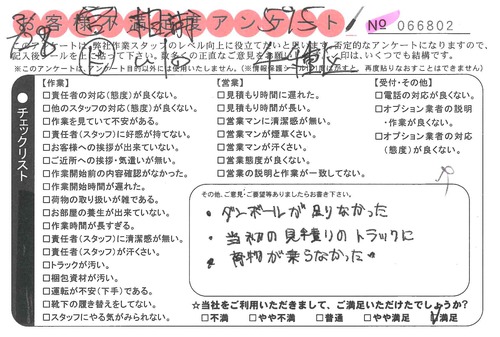 お客様不満足度アンケート
No 066802
このアンケートは、弊社作業スタッフのレベル向上に役立てたいと思います。否定的なアンケートになりますので、
記入後シールを上に貼って下さい。
印は、いくつでも結構です。
チェックリスト
【作業】
□責任者の対応(態度)が良くない。
□他のスタッフの対応(態度)が良くない。
□作業を見ていて不安がある。
□責任者(スタッフ)に好感が持てない。
□お客様への挨拶が出来ていない。
□ご近所への挨拶・気遣いが無い。
□作業開始前の内容確認がなかった。
□作業開始時間が遅れた。
□荷物の取り扱いが雑である。
□お部屋の養生が出来ていない。
□作業時間が長すぎる。
□責任者(スタッフ)に清潔感が無い。
□責任者(スタッフ)が汗くさい。
□トラックが汚い。
□梱包資材が汚い。
□運転が不安(下手)である。
□靴下の履き替えをしてない。
□スタッフにやる気がみられない。
【営業】
□見積もり時間に遅れた。
□見積もり時間が長い。
□営業マンに清潔感が無い。
□営業マンが煙草くさい。
□営業マンが汗くさい。
□営業態度が良くない。
□営業の説明と作業が一致してない。
【受付・その他】
□電話の対応が良くない。
□オプション業者の説明
・作業が良くない。
□オプション業者の対応
(態度)が良くない。
その他、ご意見・ご要望等ありましたらお書き下さい。
・ダンボールが足りなかった
・当初の見積りのトラックに
荷物が乗らなかった
☆当社をご利用いただきまして、ご満足いただけたでしょうか?
□不満 □やや不満 □普通 □やや満足 □満足